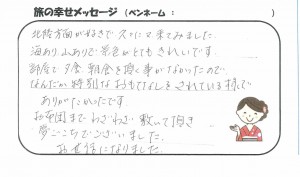 旅の幸せメッセージ (ペンネーム: )
北陸方面が好きで久々に来てみました。
海あり山ありで景色がとてもきれいです。
部屋で夕食、朝食を頂く事がなかったので
なんだか特別なおもてなしをされている様で
ありがたかったです
お布団までわざわざ敷いて頂き
夢ごこちでございました。
お世話になりました。